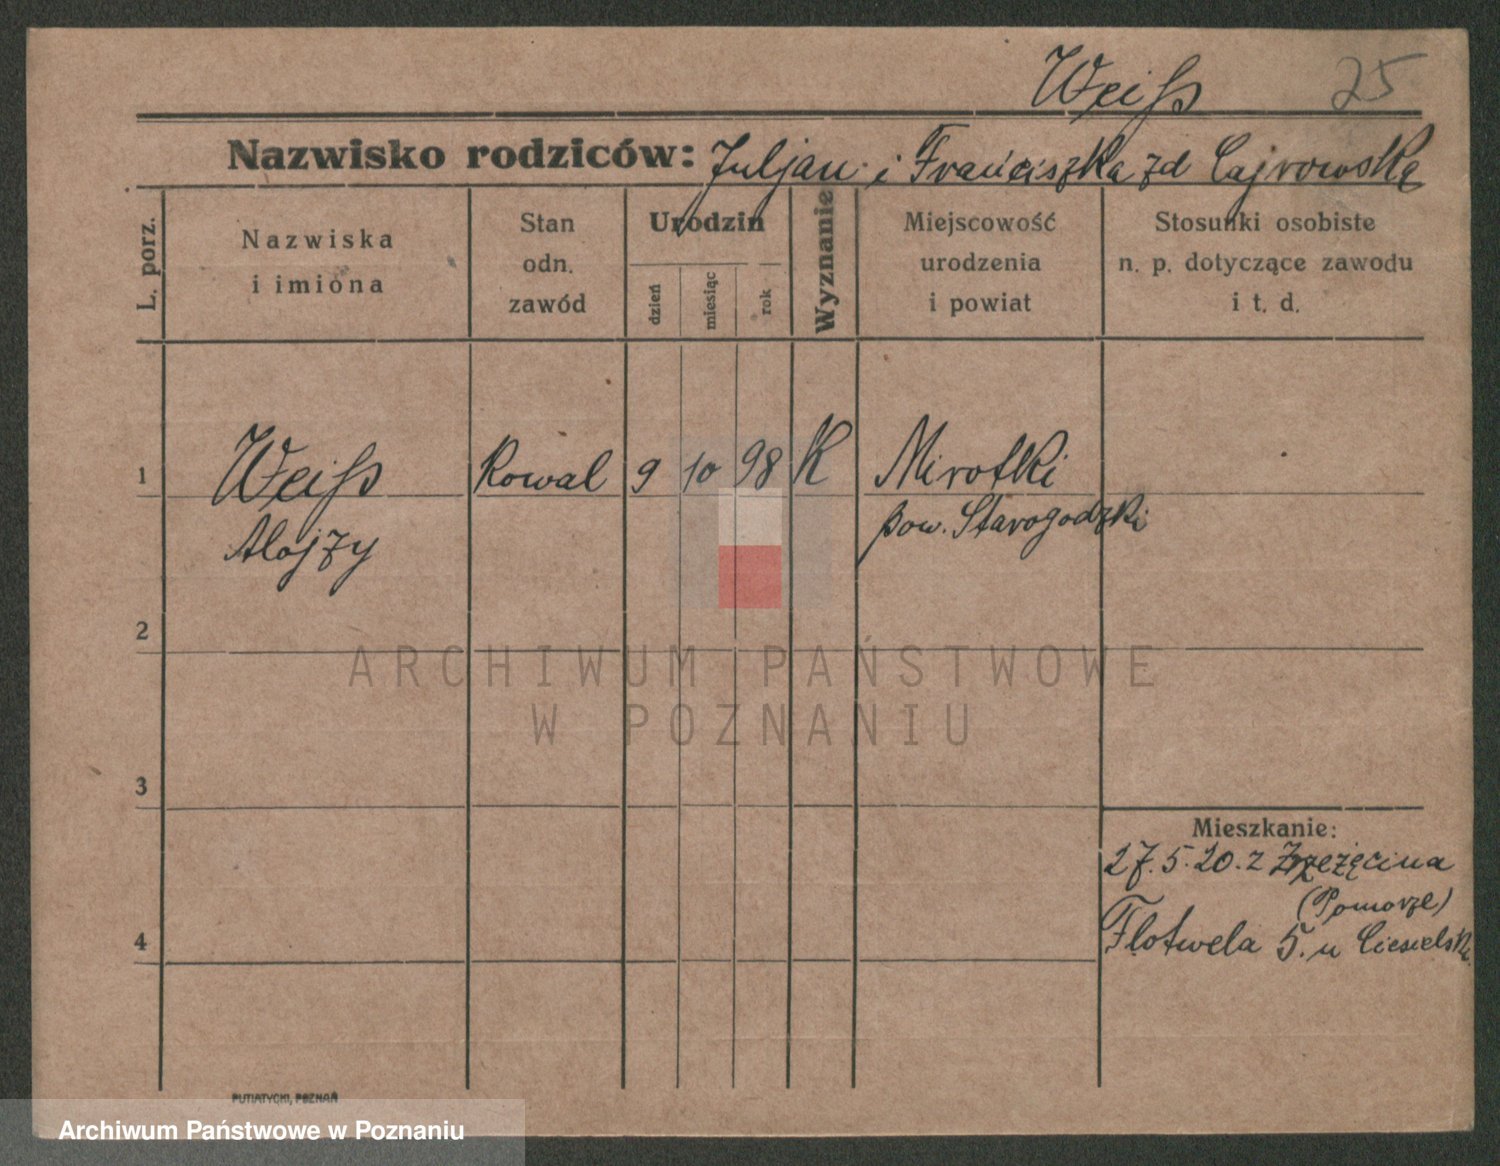 Weiß 25
Nazwisko rodziców: Juljan i Franciszka zd Cajrowska
L. porz.
Nazwiska
i imiona
Stan
odn.
zawód
Urodzin
dzień
miesiąc
rok
Wyznanie
Miejscowość
urodzenia
i powiat
Stosunki osobiste
n. p. dotyczące zawodu
i t. d.
1 Weiß Kowal 9 10 98 K Mirotki
Alojzy pow. Starogodzki
2
ARCHIWUM PAŃSTWOWE
W POZNANIU
3
Mieszkanie:
27.5.20. z
(Pomorze)
4 Flotwela 5. u
PUTIATYCKI, POZNAŃ
Archiwum Państwowe w Poznaniu